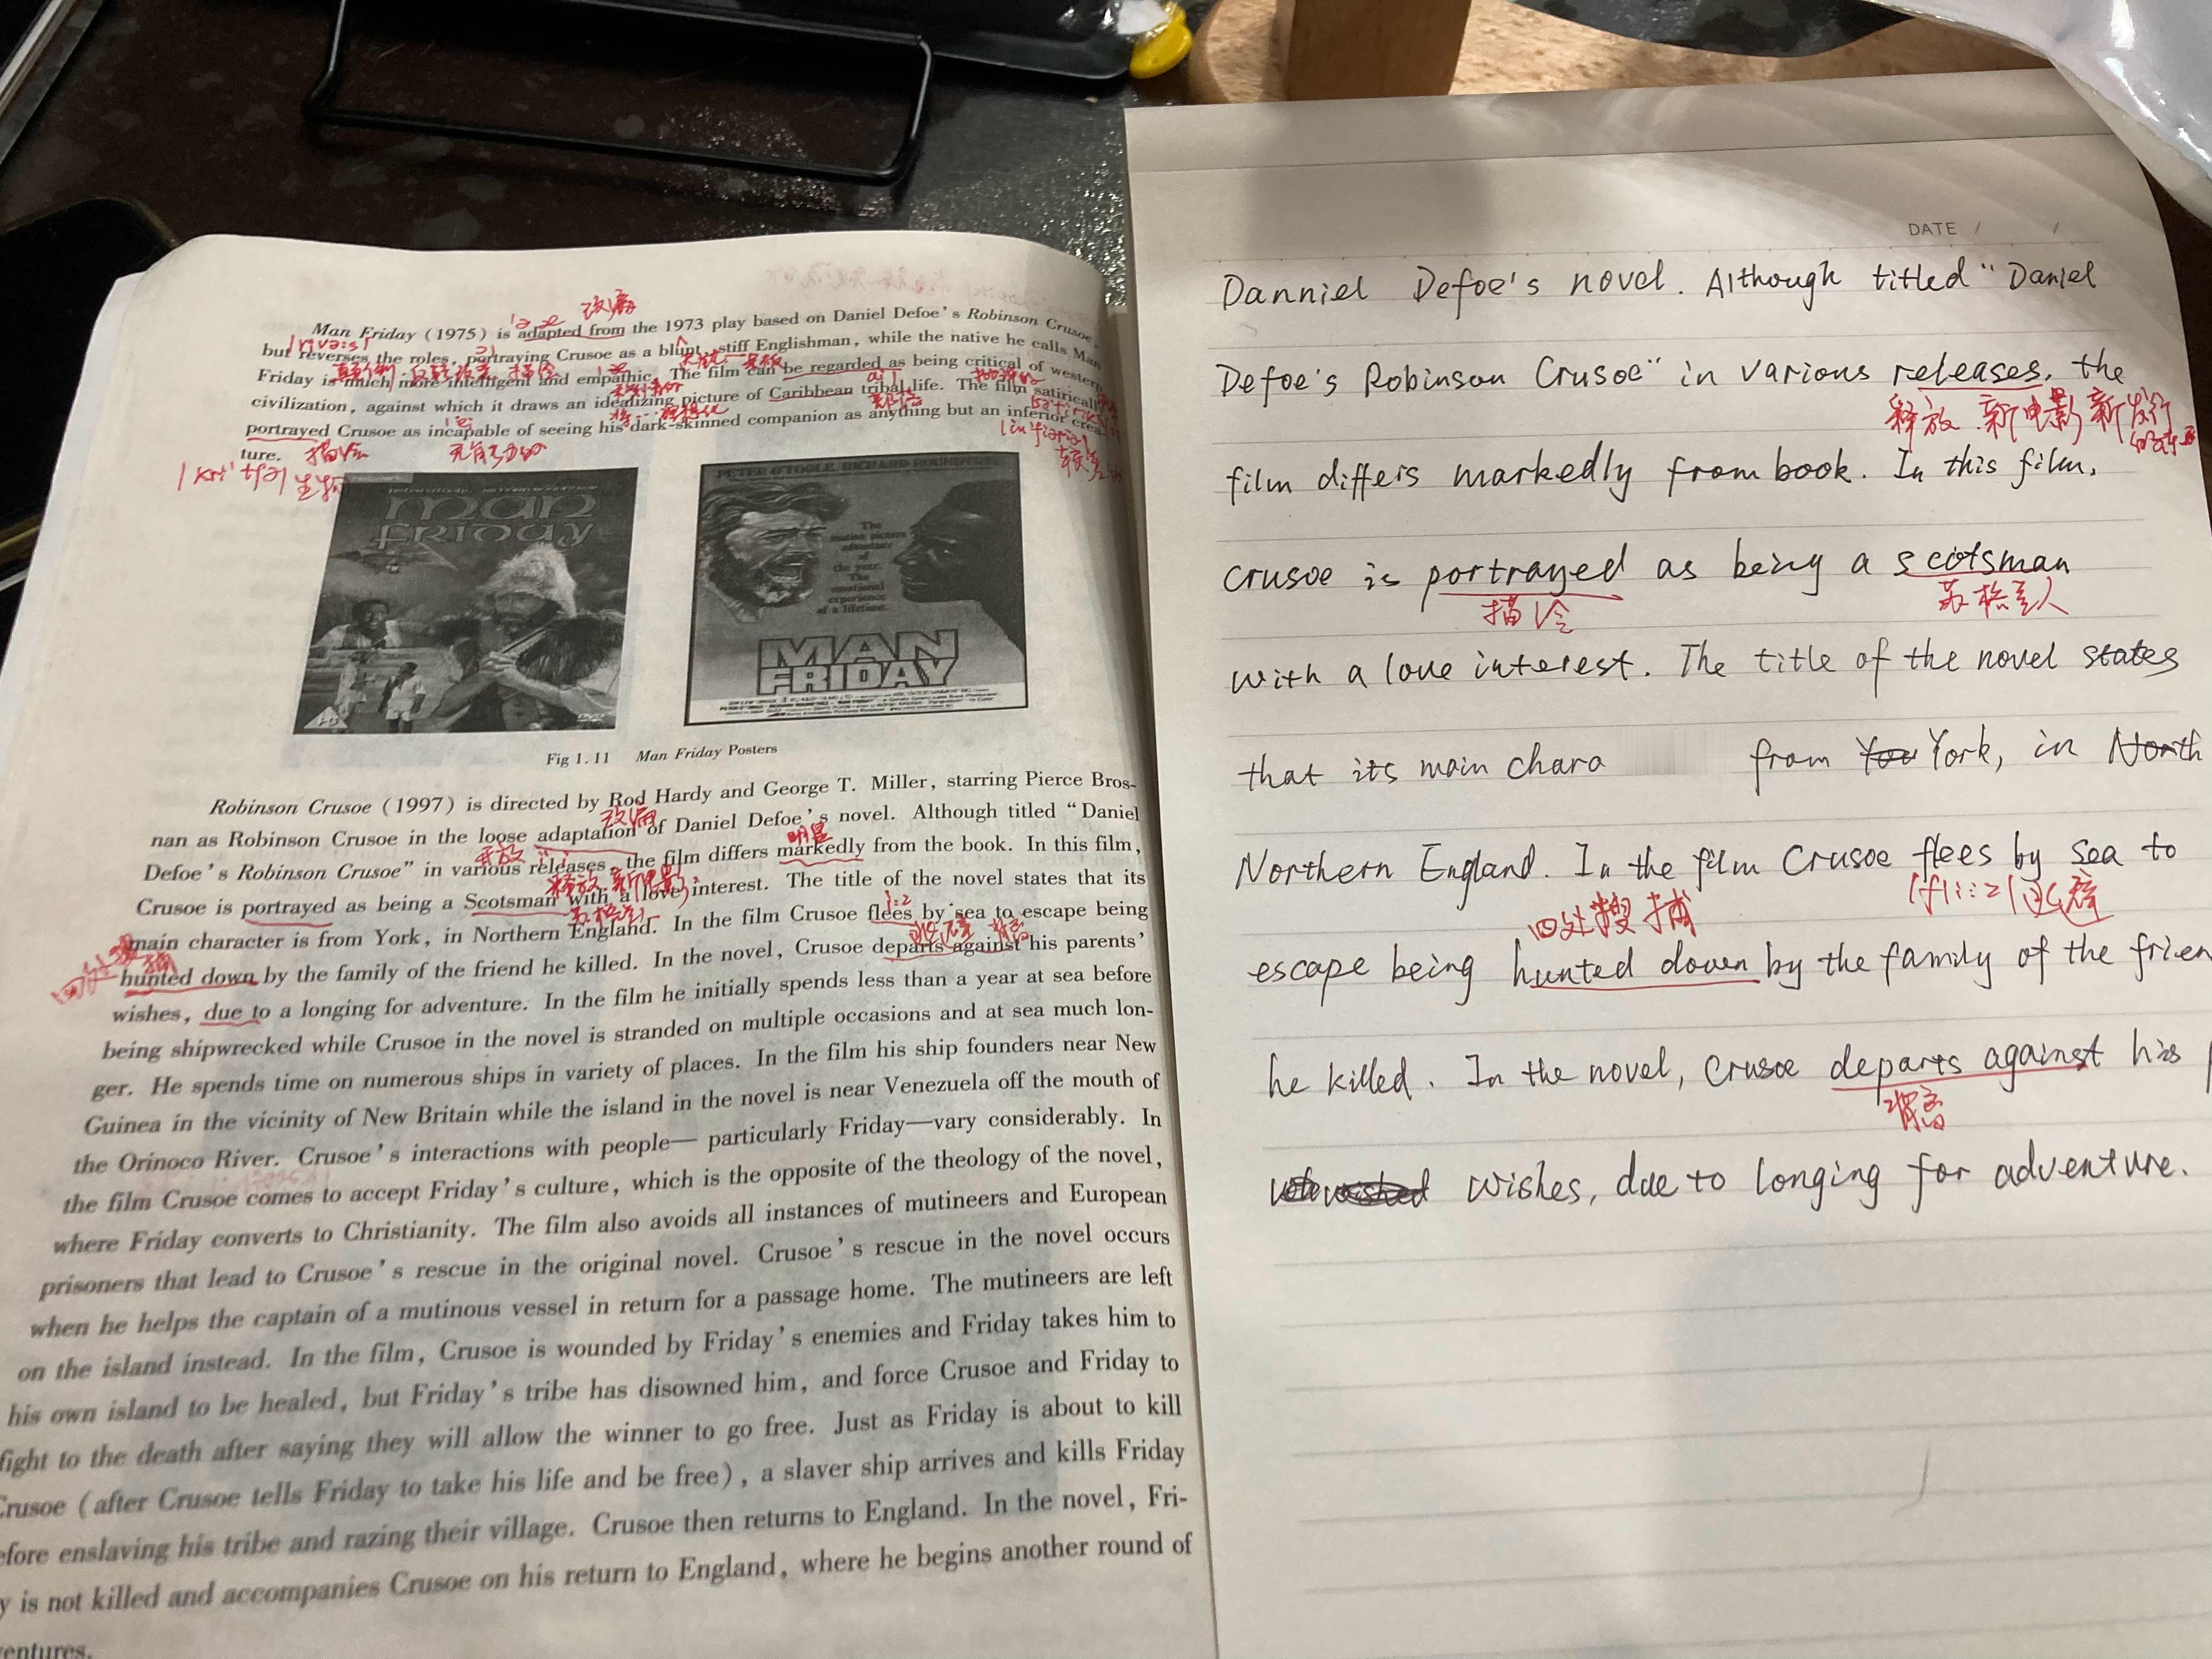 改编
Man Friday (1975) is adapted from the 1973 play based on Daniel Defoe's Robinson Crusoe,
but reverses the roles, portraying Crusoe as a blunt, stiff Englishman, while the native he calls Man
Friday is much more intelligent and empathic. The film can be regarded as being critical of western
civilization, against which it draws an idealizing picture of Caribbean tribal life. The film satirically
portrayed Crusoe as incapable of seeing his dark-skinned companion as anything but an inferior crea-
ture. 描绘
生物
MAN
FRIDAY
DVD
PETER O'TOOLE RICHARD ROUNDTREE
The
motion picture
adventure
of
the year.
The
emotional
experience
of a lifetime.
MAN
FRIDAY
Fig 1.11 Man Friday Posters
Robinson Crusoe (1997) is directed by Rod Hardy and George T. Miller, starring Pierce Bros-
改编
nan as Robinson Crusoe in the loose adaptation of Daniel Defoe's novel. Although titled "Daniel
明显
Defoe's Robinson Crusoe" in various releases, the film differs markedly from the book. In this film,
释放 新电影
Crusoe is portrayed as being a Scotsman with a love interest. The title of the novel states that its
main character is from York, in Northern England. In the film Crusoe flees by sea to escape being
hunted down by the family of the friend he killed. In the novel, Crusoe departs against his parents'
wishes, due to a longing for adventure. In the film he initially spends less than a year at sea before
being shipwrecked while Crusoe in the novel is stranded on multiple occasions and at sea much lon-
ger. He spends time on numerous ships in variety of places. In the film his ship founders near New
Guinea in the vicinity of New Britain while the island in the novel is near Venezuela off the mouth of
the Orinoco River. Crusoe's interactions with people— particularly Friday—vary considerably. In
the film Crusoe comes to accept Friday's culture, which is the opposite of the theology of the novel,
where Friday converts to Christianity. The film also avoids all instances of mutineers and European
prisoners that lead to Crusoe's rescue in the original novel. Crusoe's rescue in the novel occurs
when he helps the captain of a mutinous vessel in return for a passage home. The mutineers are left
on the island instead. In the film, Crusoe is wounded by Friday's enemies and Friday takes him to
his own island to be healed, but Friday's tribe has disowned him, and force Crusoe and Friday to
fight to the death after saying they will allow the winner to go free. Just as Friday is about to kill
Crusoe (after Crusoe tells Friday to take his life and be free), a slaver ship arrives and kills Friday
efore enslaving his tribe and razing their village. Crusoe then returns to England. In the novel, Fri-
y is not killed and accompanies Crusoe on his return to England, where he begins another round of
ventures.
DATE / /
Danniel Defoe's novel. Although titled "Daniel
Defoe's Robinson Crusoe" in various releases, the
释放 新电影 新发行
film differs markedly from book. In this film,
crusoe is portrayed as being a scotsman
描绘 苏格兰人
with a love interest. The title of the novel states
that its main chara from York, in North
Northern England. In the film Crusoe flees by sea to
四处搜捕 /fli:z/ 逃避
escape being hunted down by the family of the frien
he killed. In the novel, Crusoe departs against his
背离
wishes, due to longing for adventure.